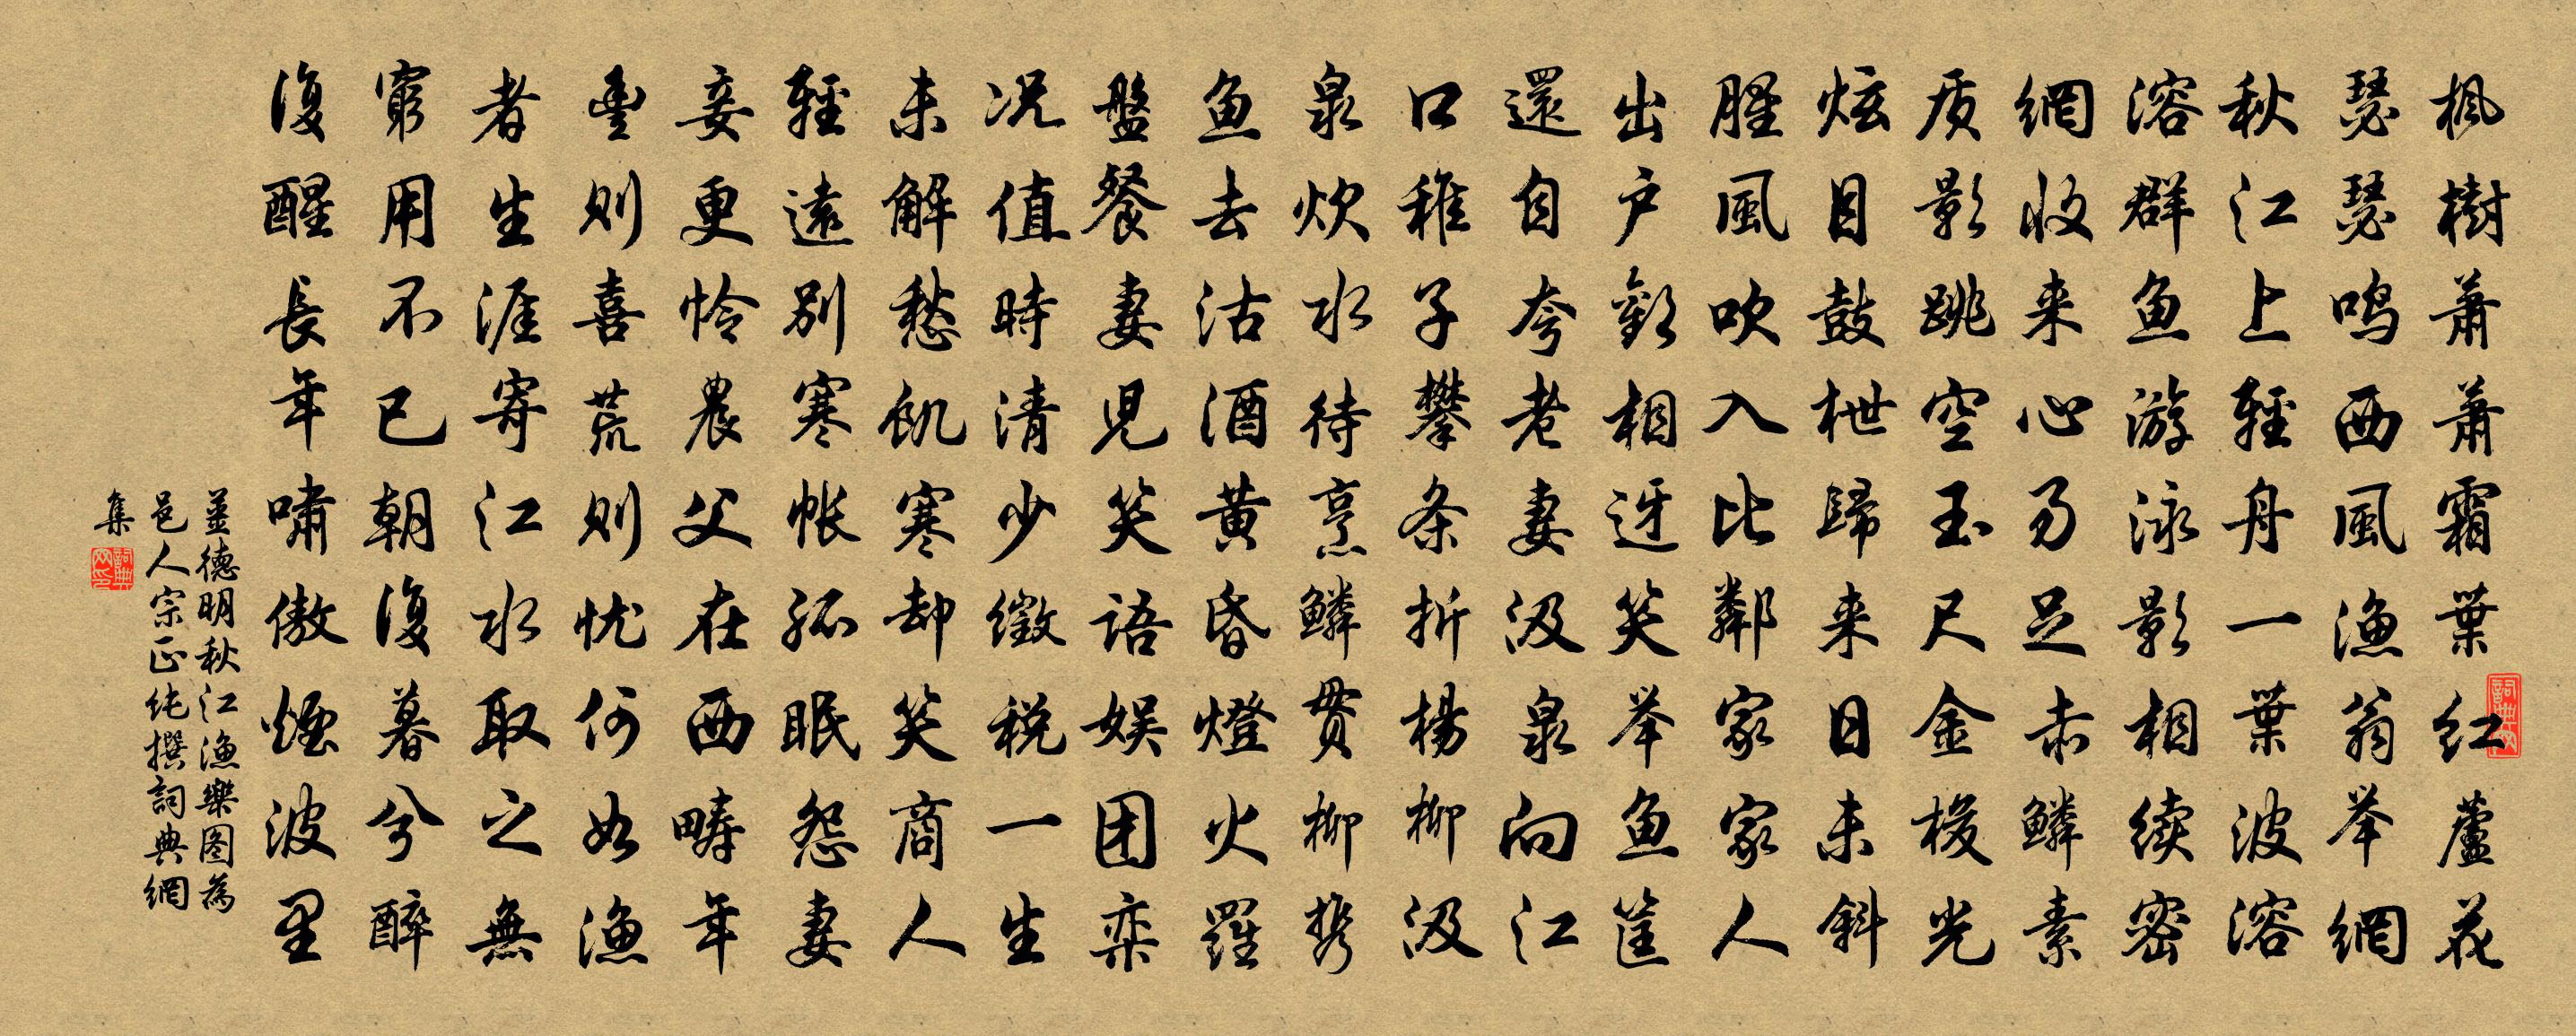 詞典網
楓樹蕭蕭霜葉紅蘆花
瑟瑟鸣西風渔翁举網
秋江上輕舟一葉波溶
溶群鱼游泳影相续密
網收来心易足赤鱗素
质影跳空玉尺金梭光
炫目鼓枻歸来日未斜
腥風吹入比鄰家家人
出户歡相迓笑举鱼筐
還自夸老妻汲泉向江
口稚子攀条折楊柳汲
泉炊水待烹鱗贯柳携
鱼去沽酒黄昏燈火羅
盤餐妻児笑語娱团栾
况值時清少徵税一生
未解愁飢寒却笑商人
輕遠别寒帐孤眠怨妻
妾更怜農父在西疇年
豊則喜荒則忧何如渔
者生涯寄江水取之無
窮用不已朝復暮兮醉
復醒長年嘯傲煙波里
姜德明秋江渔樂图為
邑人宗正纯撰詞典網
集
詞典網印